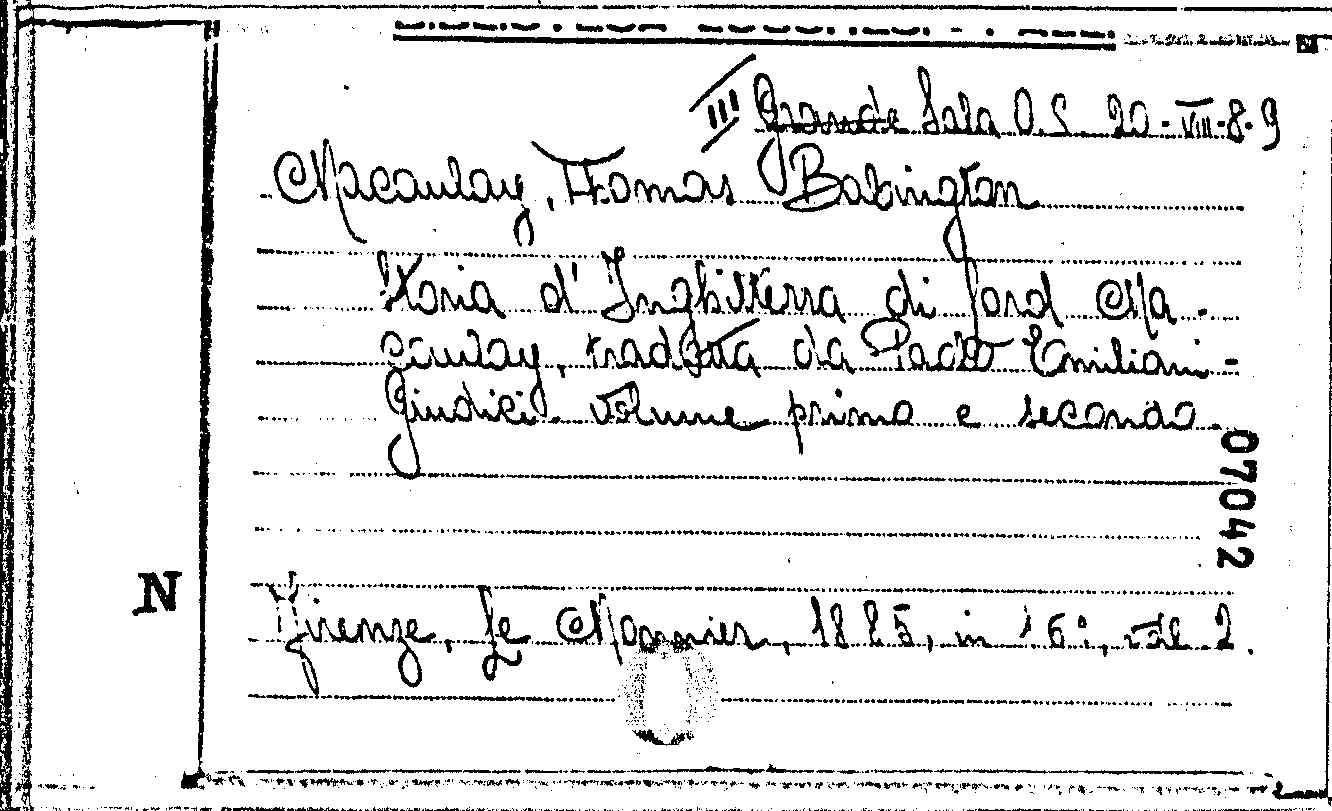 III Grande Sala O.S. 20-VIII-8-9
Macaulay, Thomas Babington
Storia d'Inghilterra di Lord Ma-
caulay, tradotta da Paolo Emiliani-
Giudici. Volume primo e secondo.
07042
N
Firenze, Le Monnier, 1885, in 16°, voll. 2.